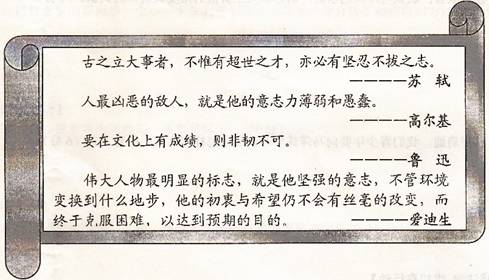 古之立大事者，不惟有超世之才，亦必有坚忍不拔之志。
————苏　轼
人最凶恶的敌人，就是他的意志力薄弱和愚蠢。
————高尔基
要在文化上有成绩，则非韧不可。
————鲁　迅
伟大人物最明显的标志，就是他坚强的意志，不管环境
变换到什么地步，他的初衷与希望仍不会有丝毫的改变，而
终于克服困难，以达到预期的目的。　　————爱迪生